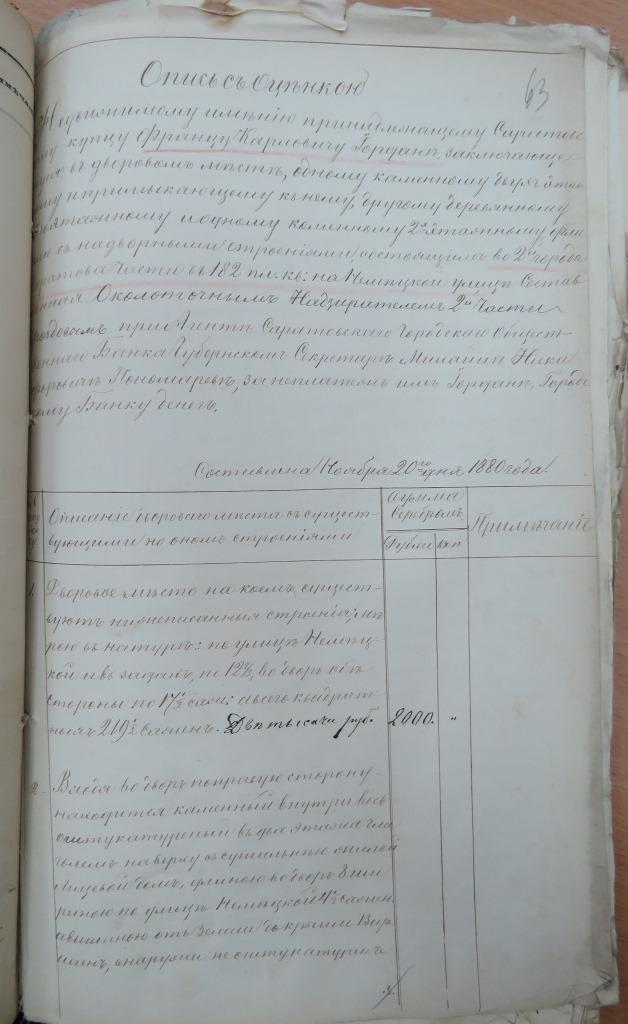 63
Опись съ Оцѣнкою
Недвижимому имѣнію принадлежащему Саратовс-
му купцу Францу Карловичу Іорданъ, заключающе-
въ дворовомъ мѣстѣ, одному каменному двухъ этаж
му и примыкающему къ нему, другому деревянному
этажному и одному каменному 2хъ этажному фли
съ надворными строеніями состоящимъ во 2й города
Саратова Части въ 182 пл. кв: на Нѣмецкой улицѣ Состав
ленная Околоточнымъ Надзирателемъ 2й Части
при Агентѣ Саратовскаго Городскаго Общест-
веннаго Банка Губернскомъ Секретарѣ Михаилѣ Ника
норовичѣ Пономаревѣ, за неплатежъ имъ Іорданъ, Городс
кому Банку денегъ.
Составлена Ноября 20го дня 1880 года.
Описаніе двороваго мѣста съ сущест-
вующими на ономъ строеніями
Сумма
Серебромъ
Рубли коп
Примѣчаніе
1. Дворовое мѣсто на коемъ сущест-
вуютъ нижеписанныя строенія; мѣ
рою въ натурѣ: по улицѣ Нѣмец-
кой и въ задахъ, по 12½, во дворѣ обѣ
стороны по 17½ саж: а всего квадрат
ныхъ 219½ сажен. Двѣ тысячи руб. 2000. "
2. Входя во дворъ по правую сторону-
находится каменный внутри весь
оштукатуренный въ два этажа гла
големъ на верху съ сушильнею жилой
Лицевой домъ, длиною во дворъ 8 ши
риною по улицѣ Нѣмецкой 4½ сажен
а вышиною отъ земли до крыши
снаружи не оштукатуренъ